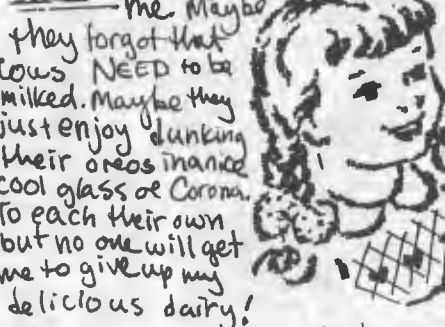 me. Maybe
they forgot that
cows NEED to be
milked. Maybe they
just enjoy dunking
their oreos in a nice
cool glass of Corona.
To each their own
but no one will get
me to give up my
delicious dairy!